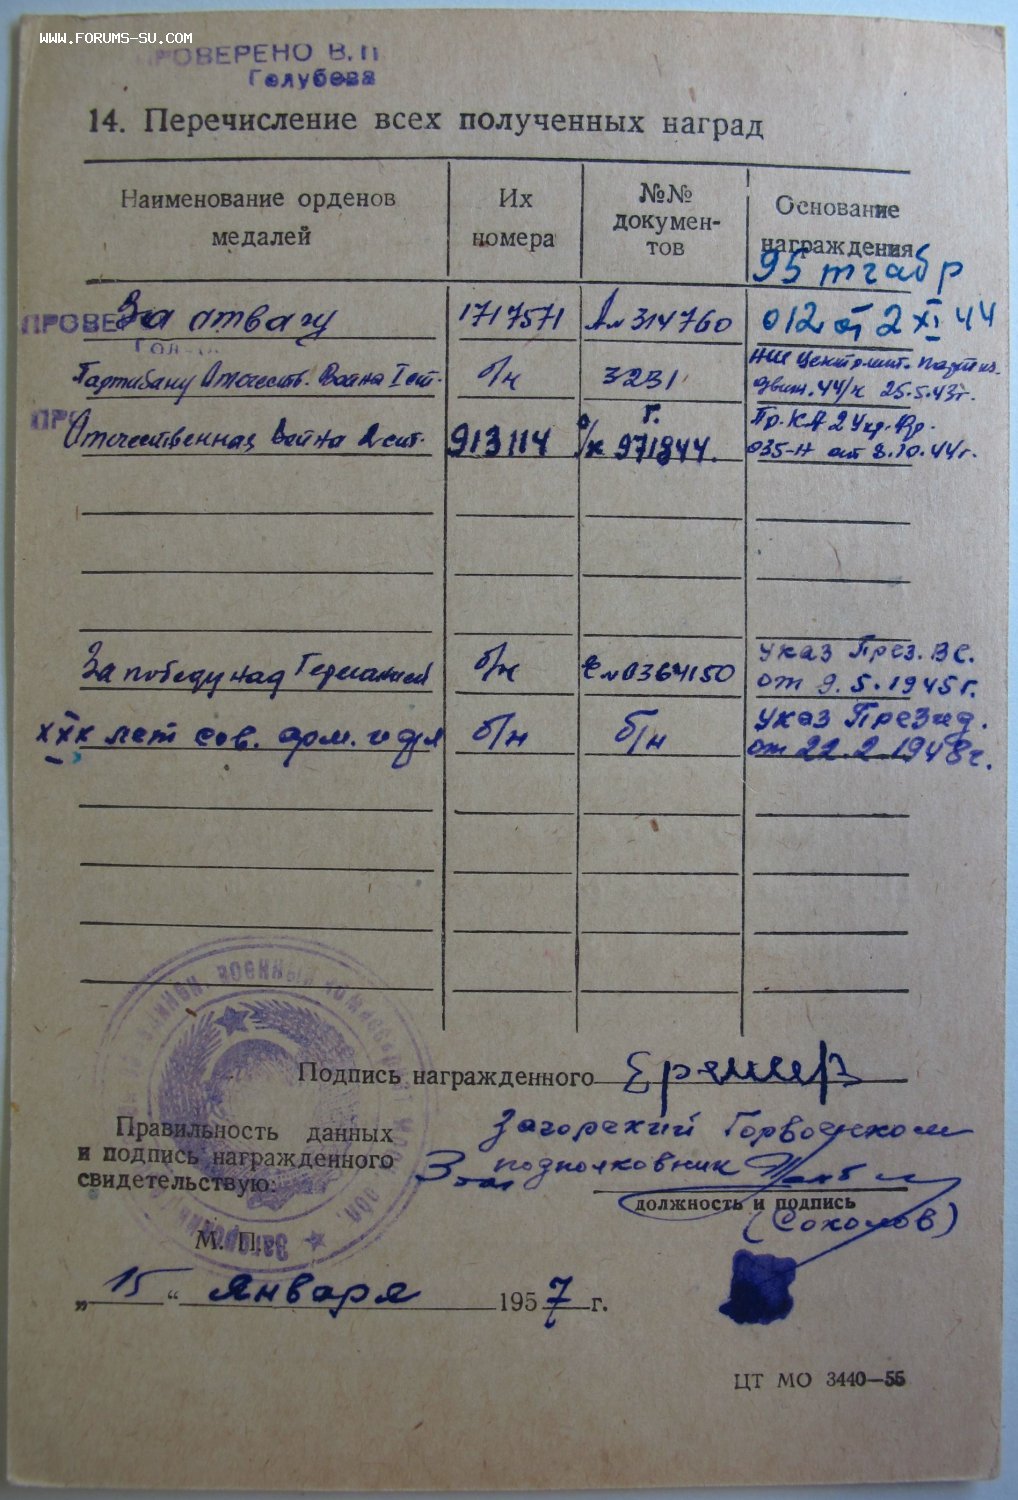 www.forums-su.com
ПРОВЕРЕНО В.П
Голубева
14. Перечисление всех полученных наград
Наименование орденов медалей
Их номера
№№ докумен-
тов
Основание награждения
95 тгабр
За отвагу 1717571 А № 314760 012 от 2 XI 44
ПРОВЕ
Партизану Отечеств. Война I ст. б/н 3231 НШ Центр.шт. партиз.
движ. 44/н 25.5.43г.
ПРО
Отечественная Война 2 ст. 913114 о/к Г. 971844. Пр. КА 2 Укр. Фр.
035-Н от 8.10.44г.
За победу над Германией б/н Е №0364150 Указ През. ВС.
от 9.5.1945г.
XXX лет сов. арм. и фл б/н б/н Указ Презид.
от 22.2.1948г.
Подпись награжденного
Правильность данных
и подпись награжденного
свидетельствую:
Загорский Горвоенком
подполковник
должность и подпись
(Соколов)
М. П.
„15“ Января 1957 г.
ЦТ МО 3440—55